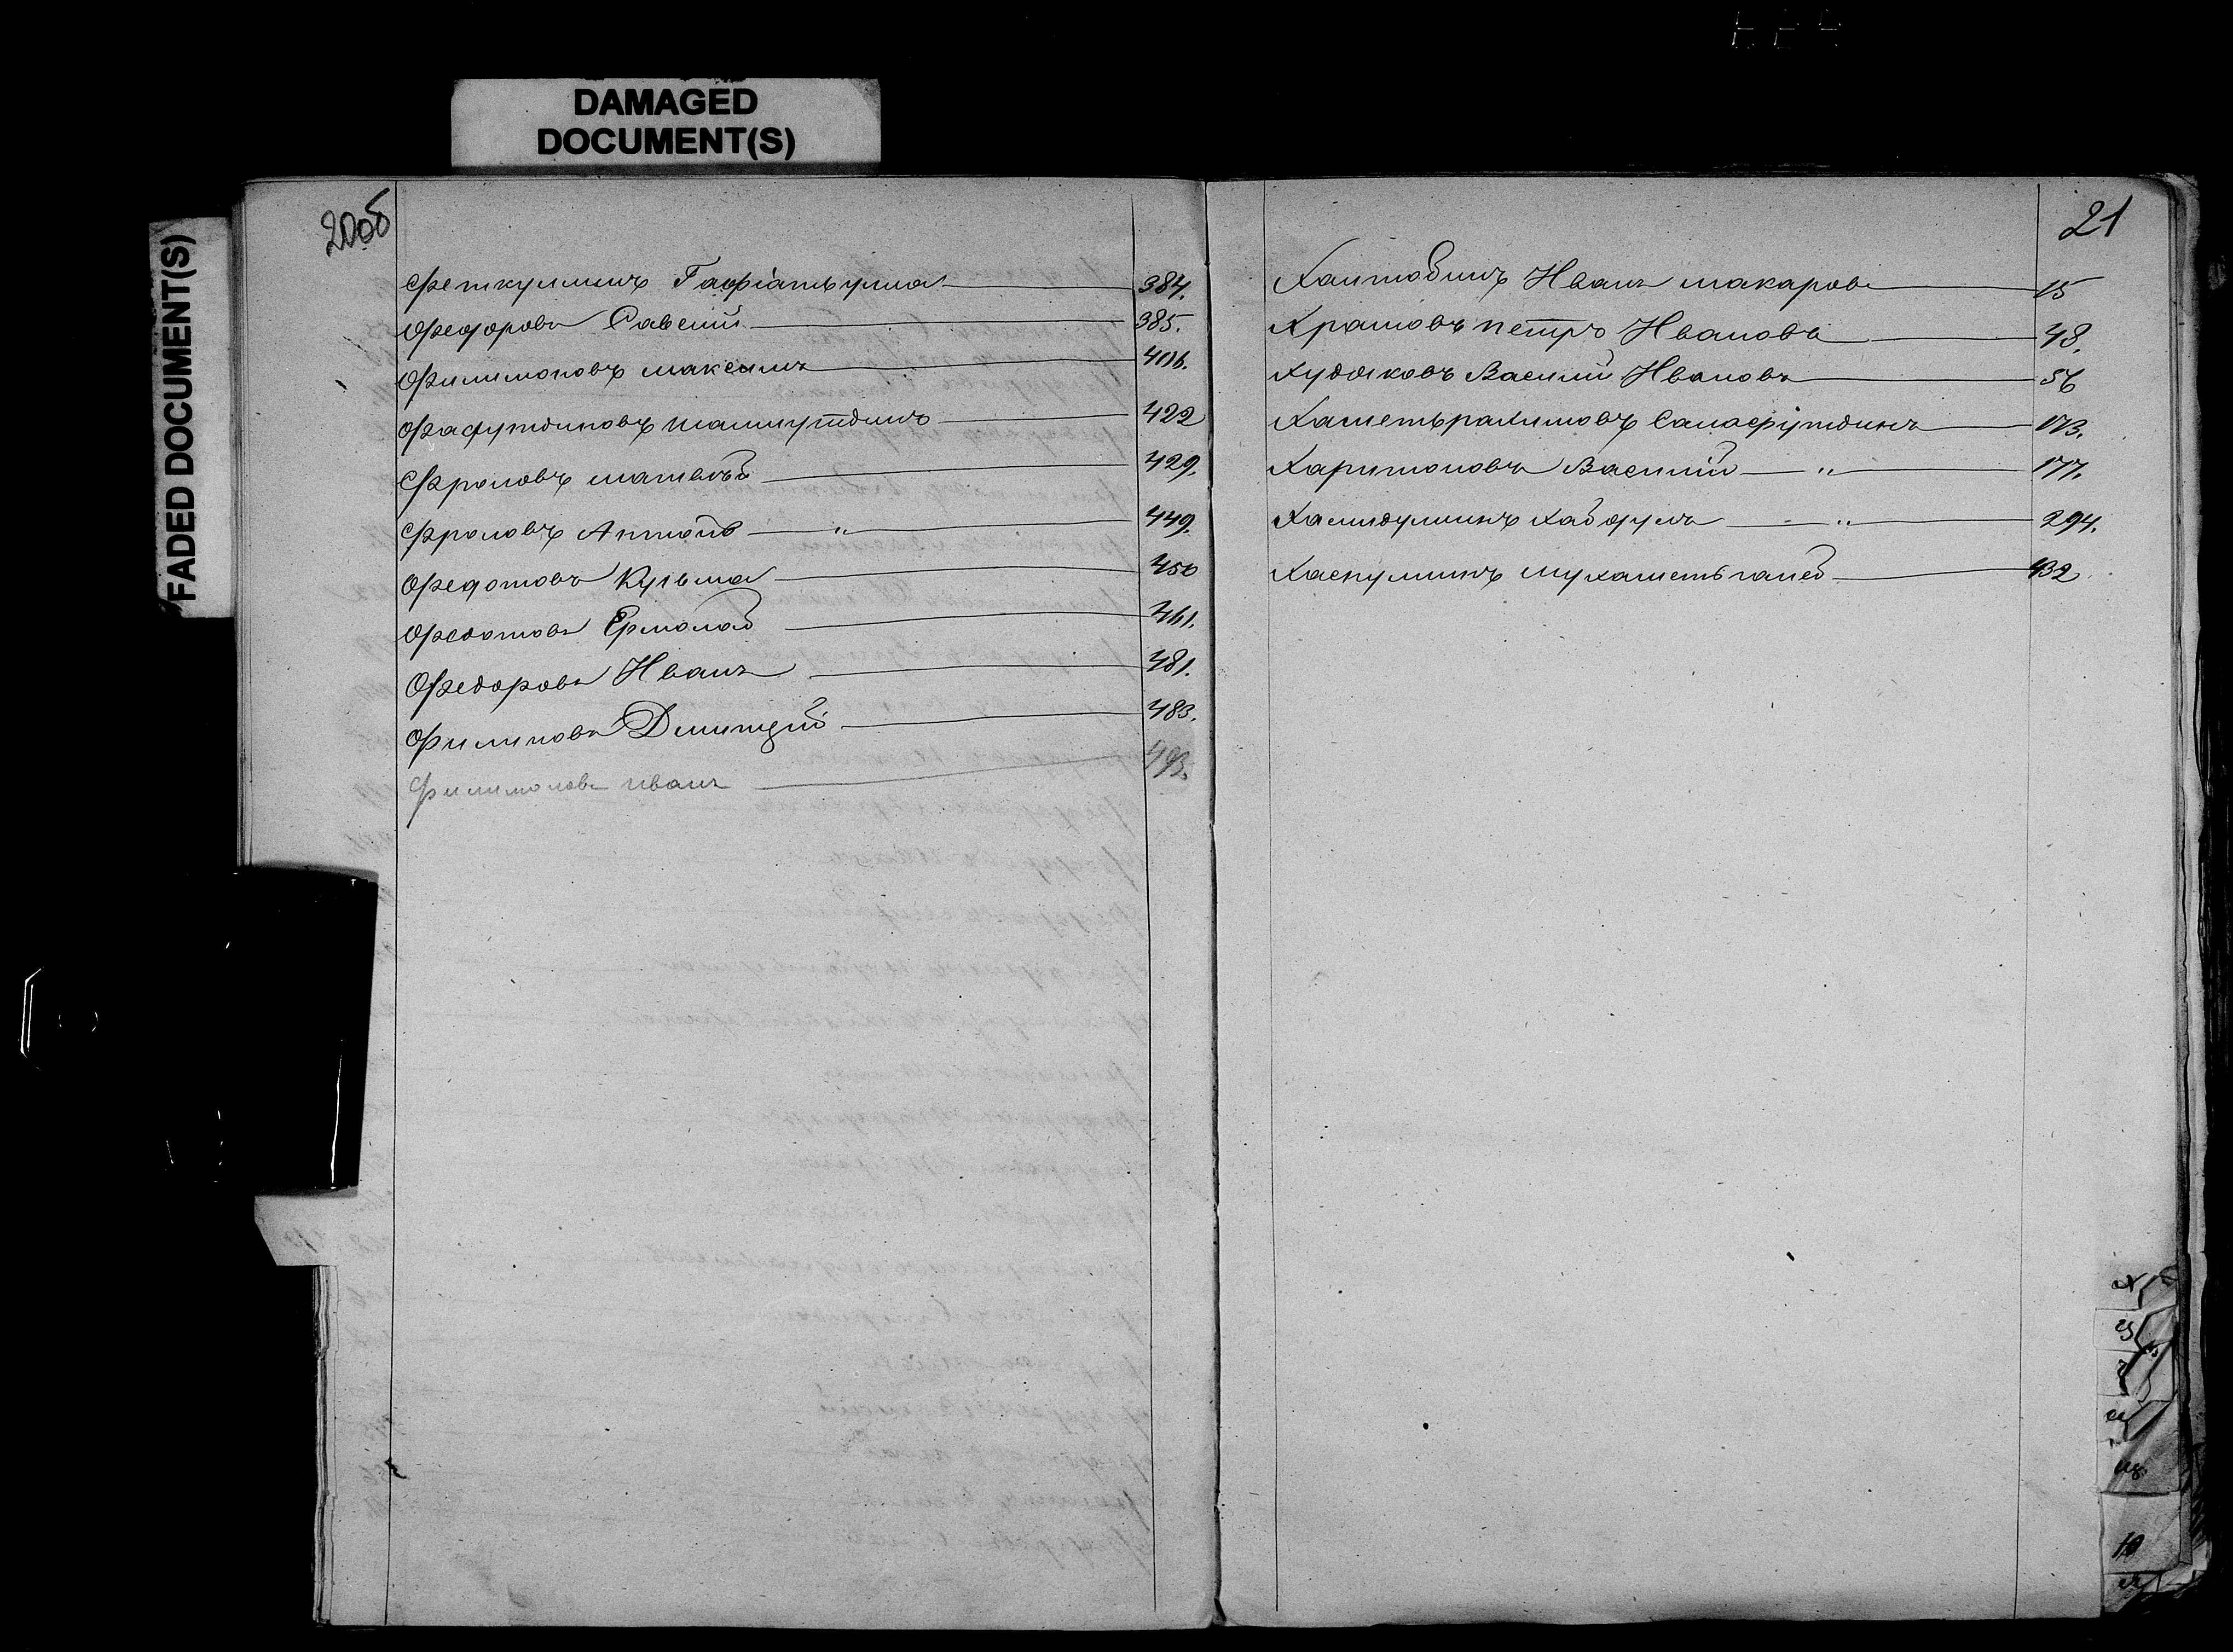 DAMAGED
DOCUMENT(S)
FADED DOCUMENT(S)
20об
Феткуллинъ Гафіатулла 384.
Федоровъ Савелий 385.
Филимоновъ Максимъ 406.
Фасхутдиновъ 422
Фроловъ Матвѣй 429.
Фроловъ Антонъ — „ — 449.
Федотовъ Кузьма 450
Федотовъ Ермолай 461.
Федоровъ Иванъ 481.
Филиповъ Дмитрій 483.
Филимоновъ Иванъ 493.
21
Иванъ Макаровъ 15
Храмовъ Петръ Ивановъ 48.
Худяковъ Василій Ивановъ 56
Хаметьрахимовъ 173.
Харитоновъ Василій — „ — 177.
Хамидуллинъ — „ — 294.
Мухаметьгалей 432
Ю